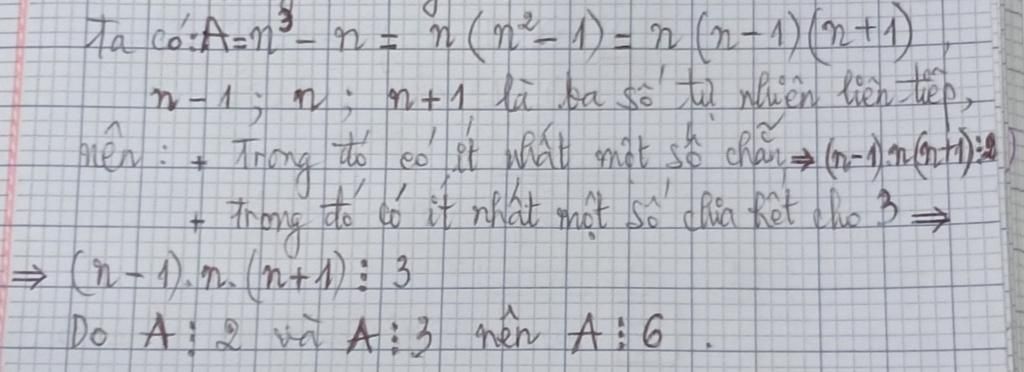 Ta có: A = n³ - n = n (n² - 1) = n (n-1)(n+1)
n-1; n; n+1 là ba số tự nhiên liên tiếp,
nên: + Trong đó có ít nhất một số chẵn ⇒ (n-1).n(n+1)⋮2
+ Trong đó có ít nhất một số chia hết cho 3 ⇒
⇒ (n-1).n.(n+1) ⋮ 3
Do A ⋮ 2 và A ⋮ 3 nên A ⋮ 6.